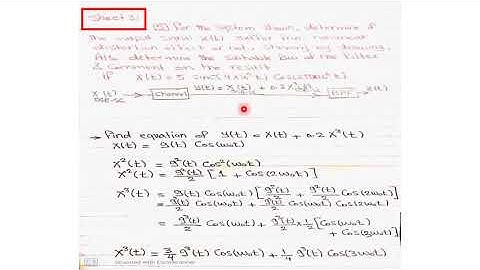 Sheet 3:
[5] For the system shown, determine if
the output signal z(t) suffer from nonlinear
distortion effect or not, showing by drawing.
Also determine the suitable BW of the filter
& comment on the result
if x(t) = 5 sinc²
X(t) DSB-SC → Channel y(t) = x(t) + 0.2 x³(t) BPF → z(t)
→ Find equation of y(t) = x(t) + 0.2 x³(t)
x(t) = g(t) Cos(ω₀t)
x²(t) = g²(t) Cos²(ω₀t)
x²(t) = g²(t)/2 [1 + Cos(2ω₀t)]
x³(t) = g(t) Cos(ω₀t) [g²(t)/2 + g²(t)/2 Cos(2ω₀t)]
= g³(t)/2 Cos(ω₀t) + g³(t)/2 Cos(ω₀t) Cos(2ω₀t)
= g³(t)/2 Cos(ω₀t) + g³(t)/2 × 1/2 [Cos(ω₀t)
+ Cos(3ω₀t)]
x³(t) = 3/4 g³(t) Cos(ω₀t) + 1/4 g³(t) Cos(3ω₀t)